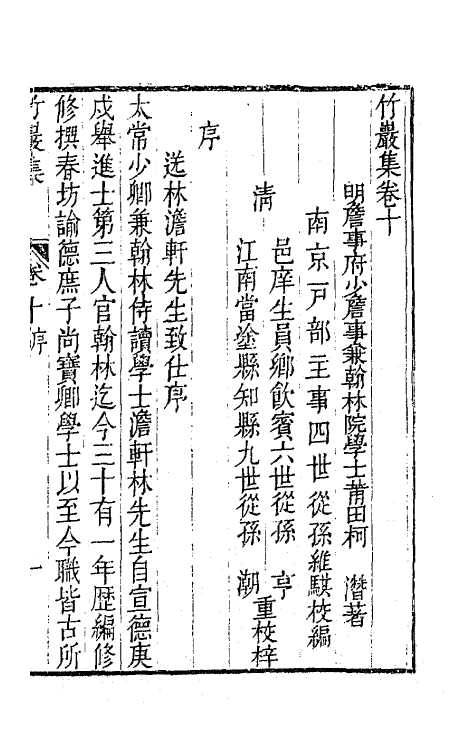 竹巖集卷十
明詹事府少詹事兼翰林院學士莆田柯　潛著
南京戸部主事四世從孫維騏校編
清　邑庠生員鄉飲賓六世從孫　亨
江南當塗縣知縣九世從孫　潮　重校梓
序
送林澹軒先生致仕序
太常少卿兼翰林侍讀學士澹軒林先生自宣德庚
戍舉進士第三人官翰林迄今三十有一年歷編修
修撰春坊諭德庶子尚寶卿學士以至今職皆古所
竹巖集　卷十序　一